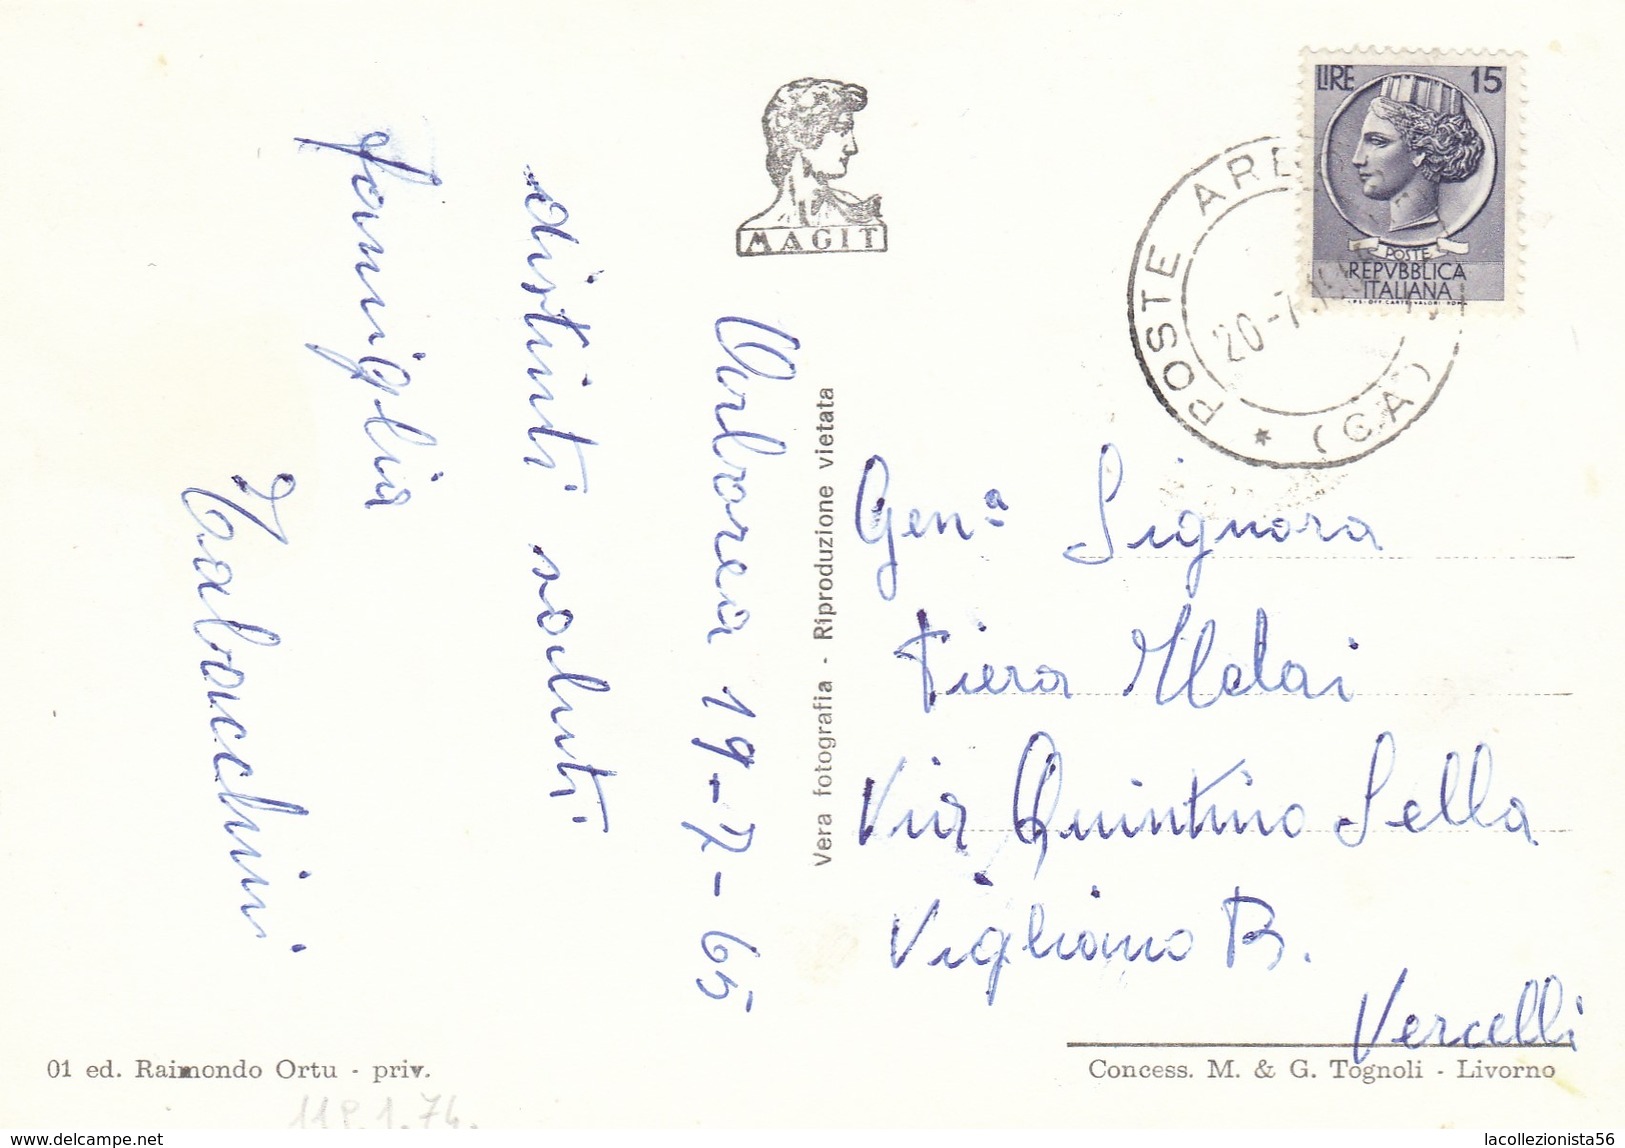 MAGIT
LIRE 15
POSTE
REPVBBLICA
ITALIANA
I.P.S.-OFF. CARTE VALORI-ROMA
POSTE
(CA)
20-7
Arborea 19-7-65
distinti saluti
famiglia
Tabacchini
Vera fotografia - Riproduzione vietata
Genª Signora
Piera
Via Quintino Sella
Vigliano B.
Vercelli
01 ed. Raimondo Ortu - priv.
Concess. M. & G. Tognoli - Livorno
delcampe.net
lacollezionista56